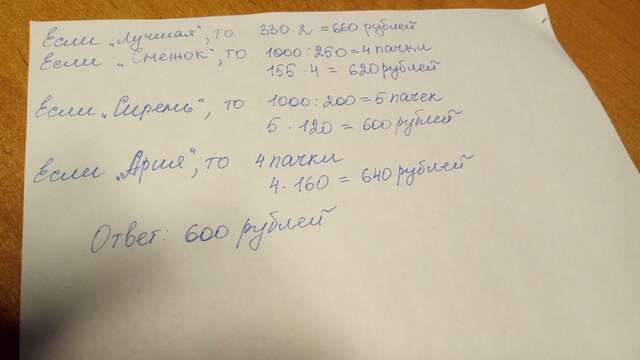 Если „Лучшая", то 330 · 2 = 660 рублей
Если „Снежок", то 1000 : 250 = 4 пачки
155 · 4 = 620 рублей
Если „Сирень", то 1000 : 200 = 5 пачек
5 · 120 = 600 рублей
Если „Ария", то 4 пачки
4 · 160 = 640 рублей
Ответ: 600 рублей